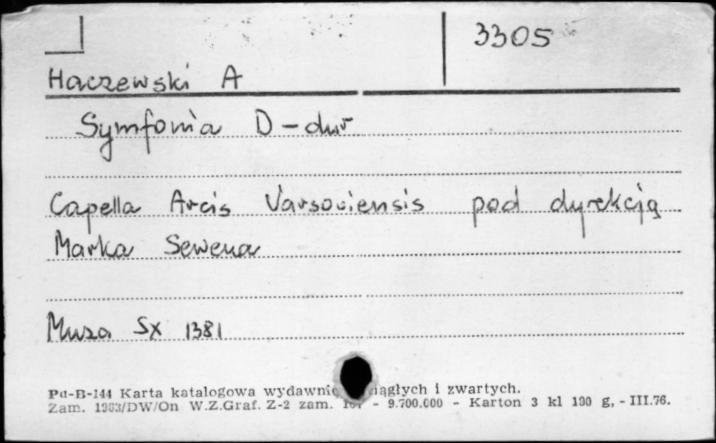 3305
Haczewski A
Symfonia D-dur
Capella Arcis Varsoviensis pod dyrekcją
Marka Sewena
Muza SX 1381
Pu-B-144 Karta katalogowa i zwartych.
Zam. W.Z.Graf. Z-2 zam. - 9.700.000 - Karton 3 kl 190 g, - III.76.